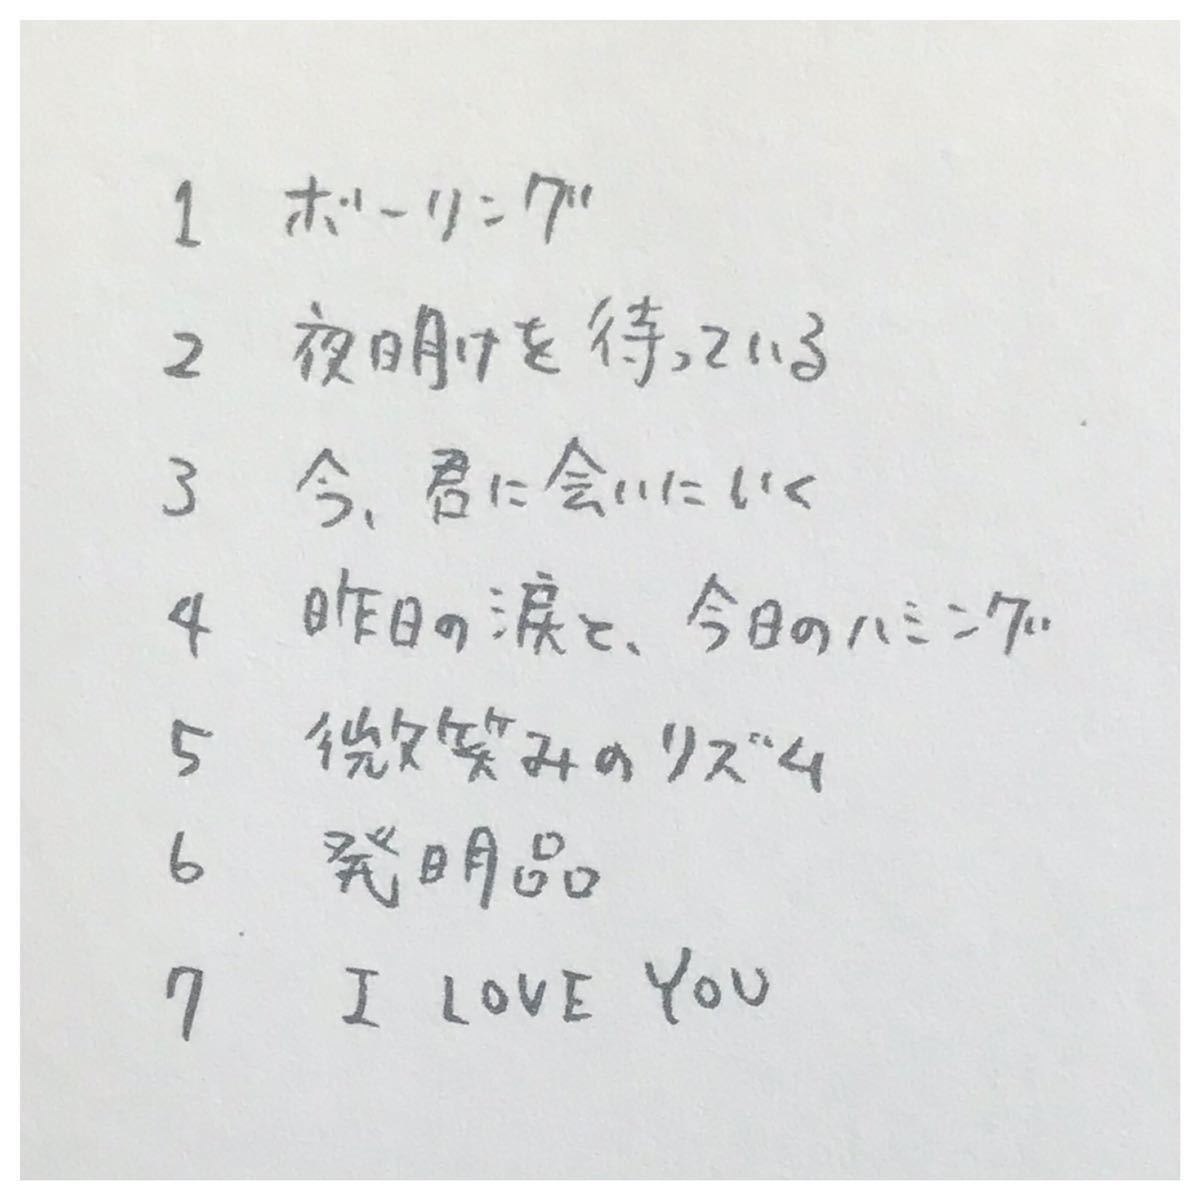 1 ボーリング
2 夜明けを待っている
3 今、君に会いにいく
4 昨日の涙と、今日のハミング
5 微笑みのリズム
6 発明品
7 I LOVE YOU